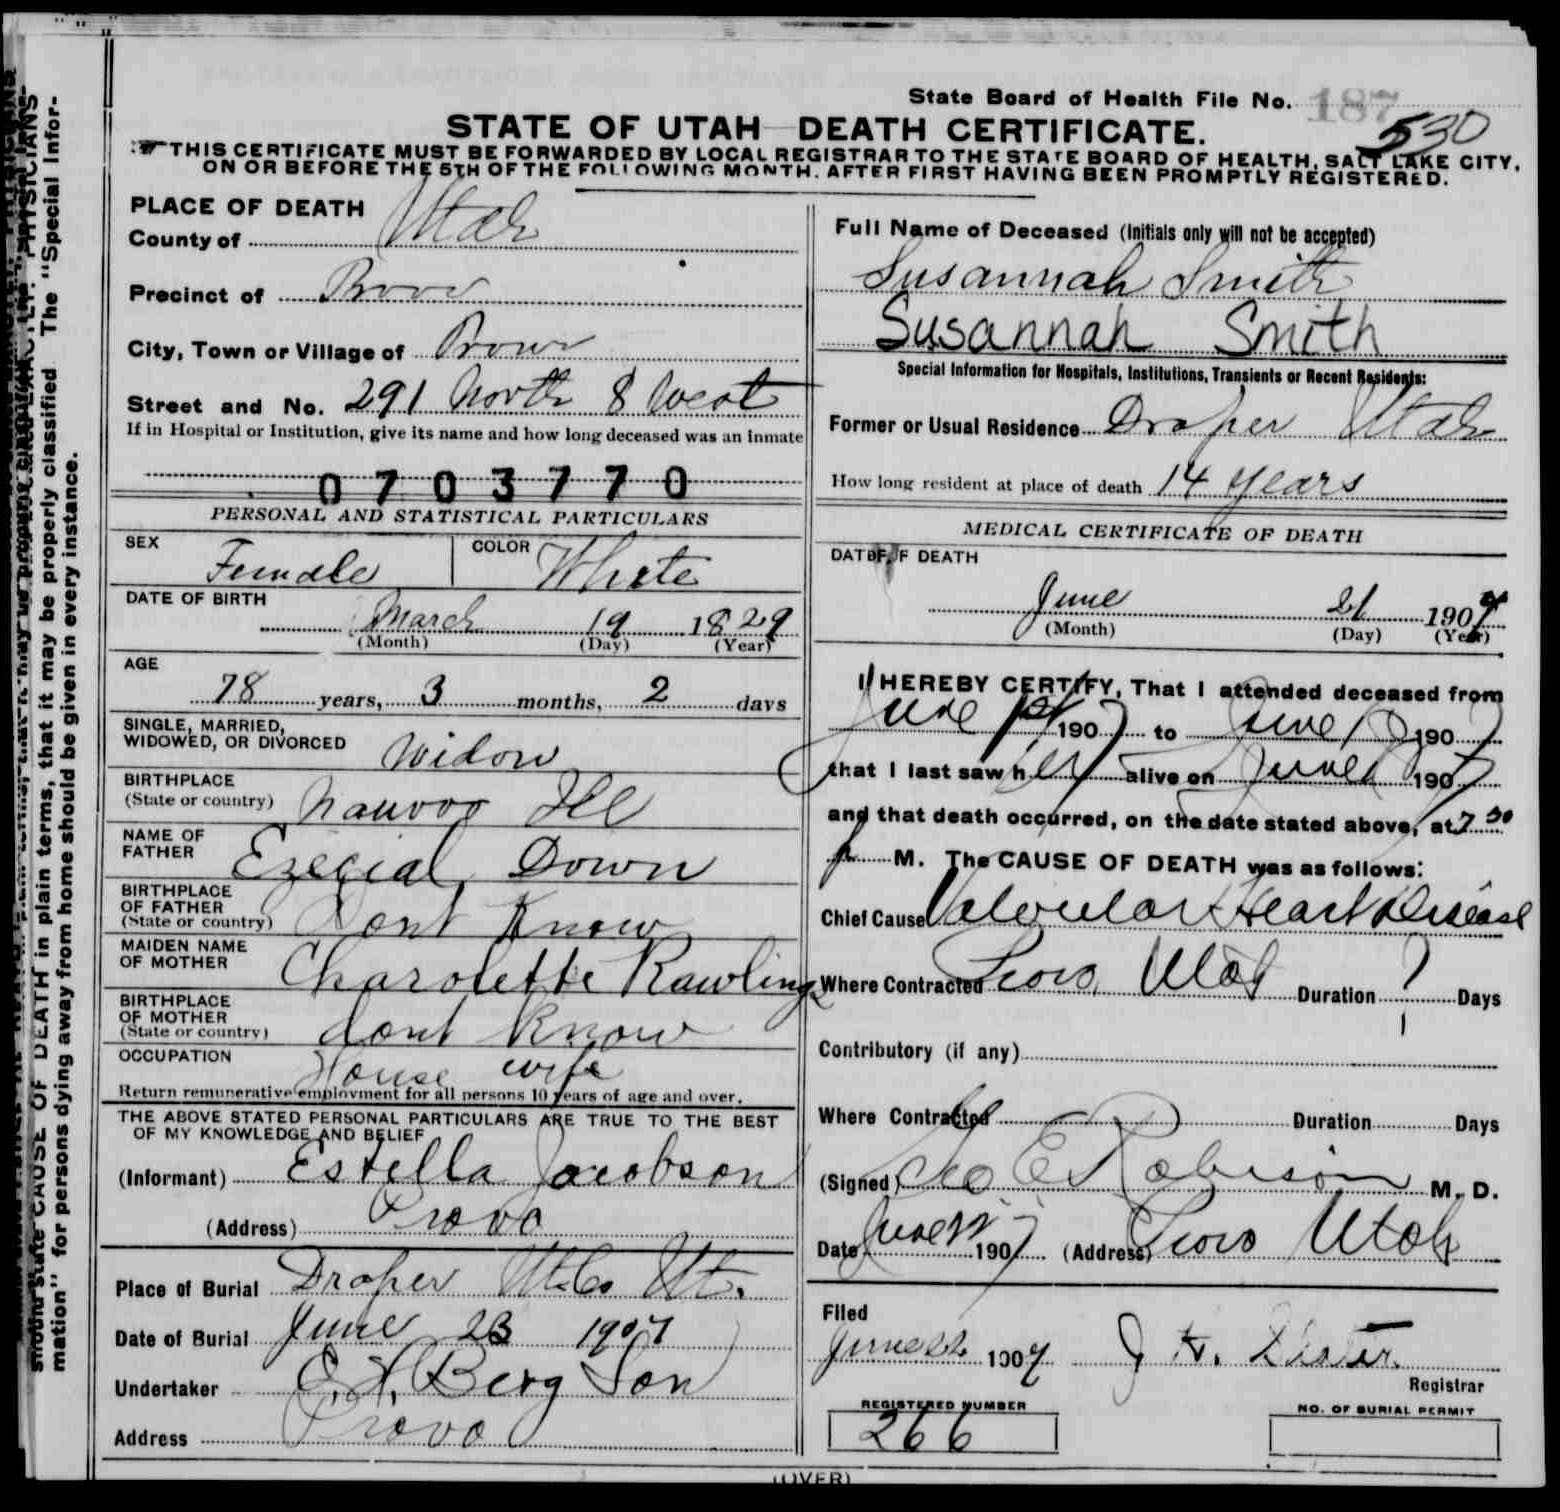 State Board of Health File No. 187
530
STATE OF UTAH—DEATH CERTIFICATE.
THIS CERTIFICATE MUST BE FORWARDED BY LOCAL REGISTRAR TO THE STATE BOARD OF HEALTH, SALT LAKE CITY,
ON OR BEFORE THE 5TH OF THE FOLLOWING MONTH, AFTER FIRST HAVING BEEN PROMPTLY REGISTERED.
PLACE OF DEATH
County of Utah
Precinct of Provo
City, Town or Village of Provo
Street and No. 291 North 8 West
If in Hospital or Institution, give its name and how long deceased was an inmate
0703770
PERSONAL AND STATISTICAL PARTICULARS
SEX Female COLOR White
DATE OF BIRTH
March 19 1829
(Month) (Day) (Year)
AGE
78 years, 3 months, 2 days
SINGLE, MARRIED,
WIDOWED, OR DIVORCED Widow
BIRTHPLACE
(State or country) Nauvoo Ill
NAME OF
FATHER Ezecial Down
BIRTHPLACE
OF FATHER
(State or country) Dont Know
MAIDEN NAME
OF MOTHER Charolette Rawlings
BIRTHPLACE
OF MOTHER
(State or country) dont Know
OCCUPATION House wife
Return remunerative employment for all persons 10 years of age and over.
THE ABOVE STATED PERSONAL PARTICULARS ARE TRUE TO THE BEST
OF MY KNOWLEDGE AND BELIEF
(Informant) Estella Jacobson
(Address) Provo
Place of Burial Draper Ut.
Date of Burial June 23 1907
Undertaker Berg Son
Address Provo
Full Name of Deceased (Initials only will not be accepted)
Susannah Smith
Susannah Smith
Special Information for Hospitals, Institutions, Transients or Recent Residents:
Former or Usual Residence Draper Utah
How long resident at place of death 14 years
MEDICAL CERTIFICATE OF DEATH
DATE OF DEATH
June 21 1907
(Month) (Day) (Year)
I HEREBY CERTIFY, That I attended deceased from
June 1st 1907 to June 1907
that I last saw her alive on June 1907
and that death occurred, on the date stated above, at 7 30
P M. The CAUSE OF DEATH was as follows:
Chief Cause Valvular Heart Disease
Where Contracted Provo Utah Duration ? Days
Contributory (if any)
Where Contracted Duration Days
(Signed) Geo E Robison M. D.
Date June 1907 (Address) Provo Utah
Filed
June 22 1907 J
Registrar
REGISTERED NUMBER
266
NO. OF BURIAL PERMIT
(OVER)
should state CAUSE OF DEATH in plain terms, that it may be properly classified The "Special Infor-
mation" for persons dying away from home should be given in every instance.